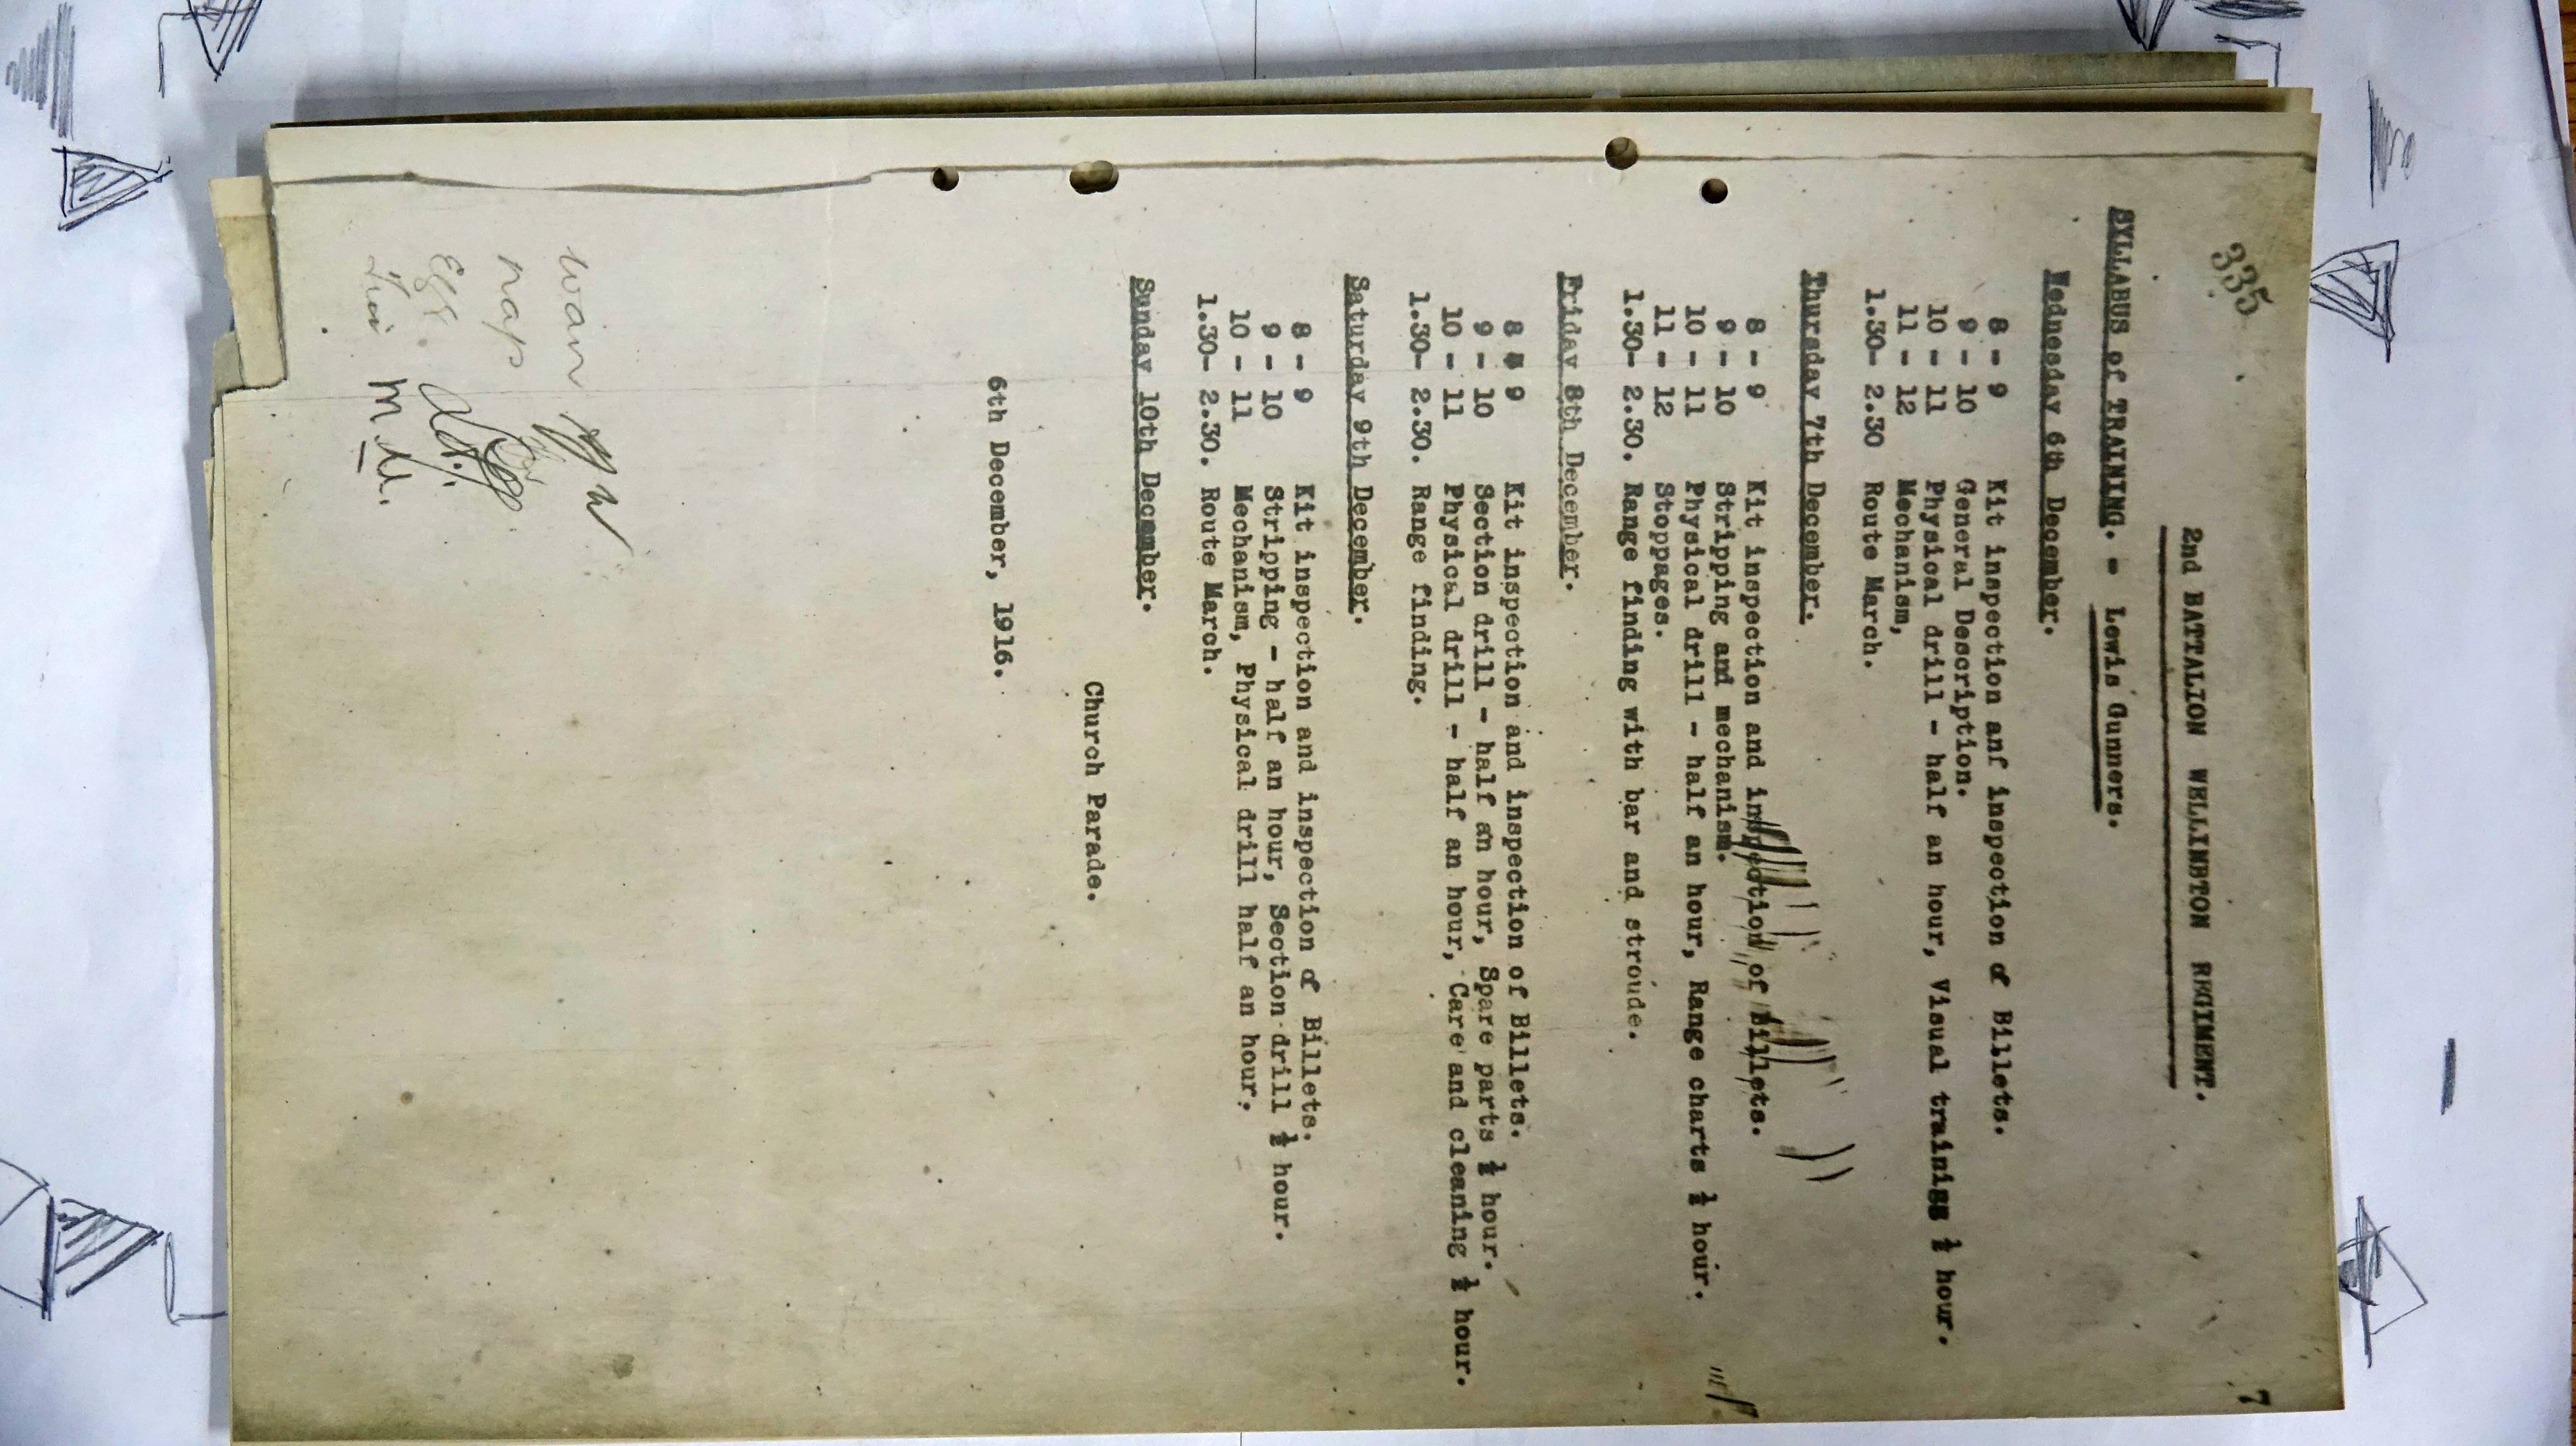 335
7
2nd BATTALION WELLINBTON REGIMENT.
SYLLABUS of TRAINING. - Lewis Gunners.
Wednesday 6th December.
8 - 9 Kit inspection anf inspection of Billets.
9 - 10 General Description.
10 - 11 Physical drill - half an hour, Visual trainigg ½ hour.
11 - 12 Mechanism,
1.30- 2.30 Route March.
Thursday 7th December.
8 - 9 Kit inspection and inspection of Billets.
9 - 10 Stripping and mechanism.
10 - 11 Physical drill - half an hour, Range charts ½ hour.
11 - 12 Stoppages.
1.30- 2.30. Range finding with bar and stroude.
Friday 8th December.
8 - 9 Kit inspection and inspection of Billets.
9 - 10 Section drill - half an hour, Spare parts ½ hour.
10 - 11 Physical drill - half an hour, Care and cleaning ½ hour.
1.30- 2.30. Range finding.
Saturday 9th December.
8 - 9 Kit inspection and inspection of Billets.
9 - 10 Stripping - half an hour, Section drill ½ hour.
10 - 11 Mechanism, Physical drill half an hour.
1.30- 2.30. Route March.
Sunday 10th December.
Church Parade.
6th December, 1916.